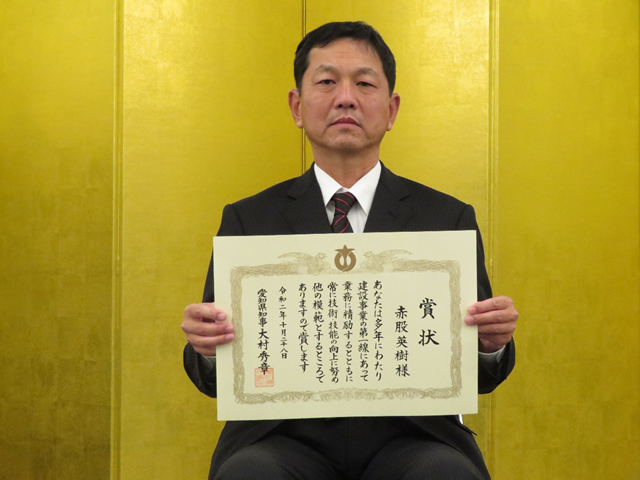 賞状
赤股英樹様
あなたは多年にわたり
建設事業の第一線にあって
業務に精励するとともに
常に技術・技能の向上に努め
他の模範とするところで
ありますので賞します
令和二年十月二十八日
愛知県知事 大村秀章